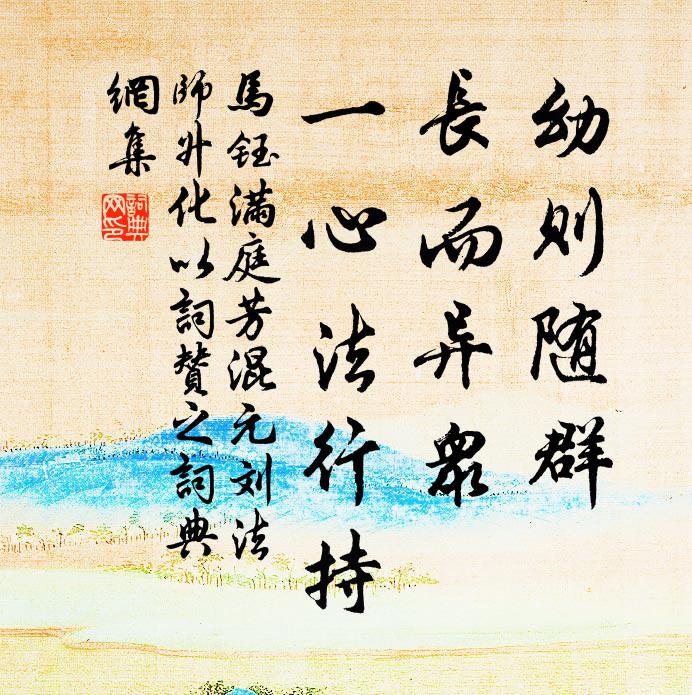 幼则随群
長而异衆
一心法行持
馬钰滿庭芳混元刘法
師升化以詞赞之詞典
網集
詞典
网印